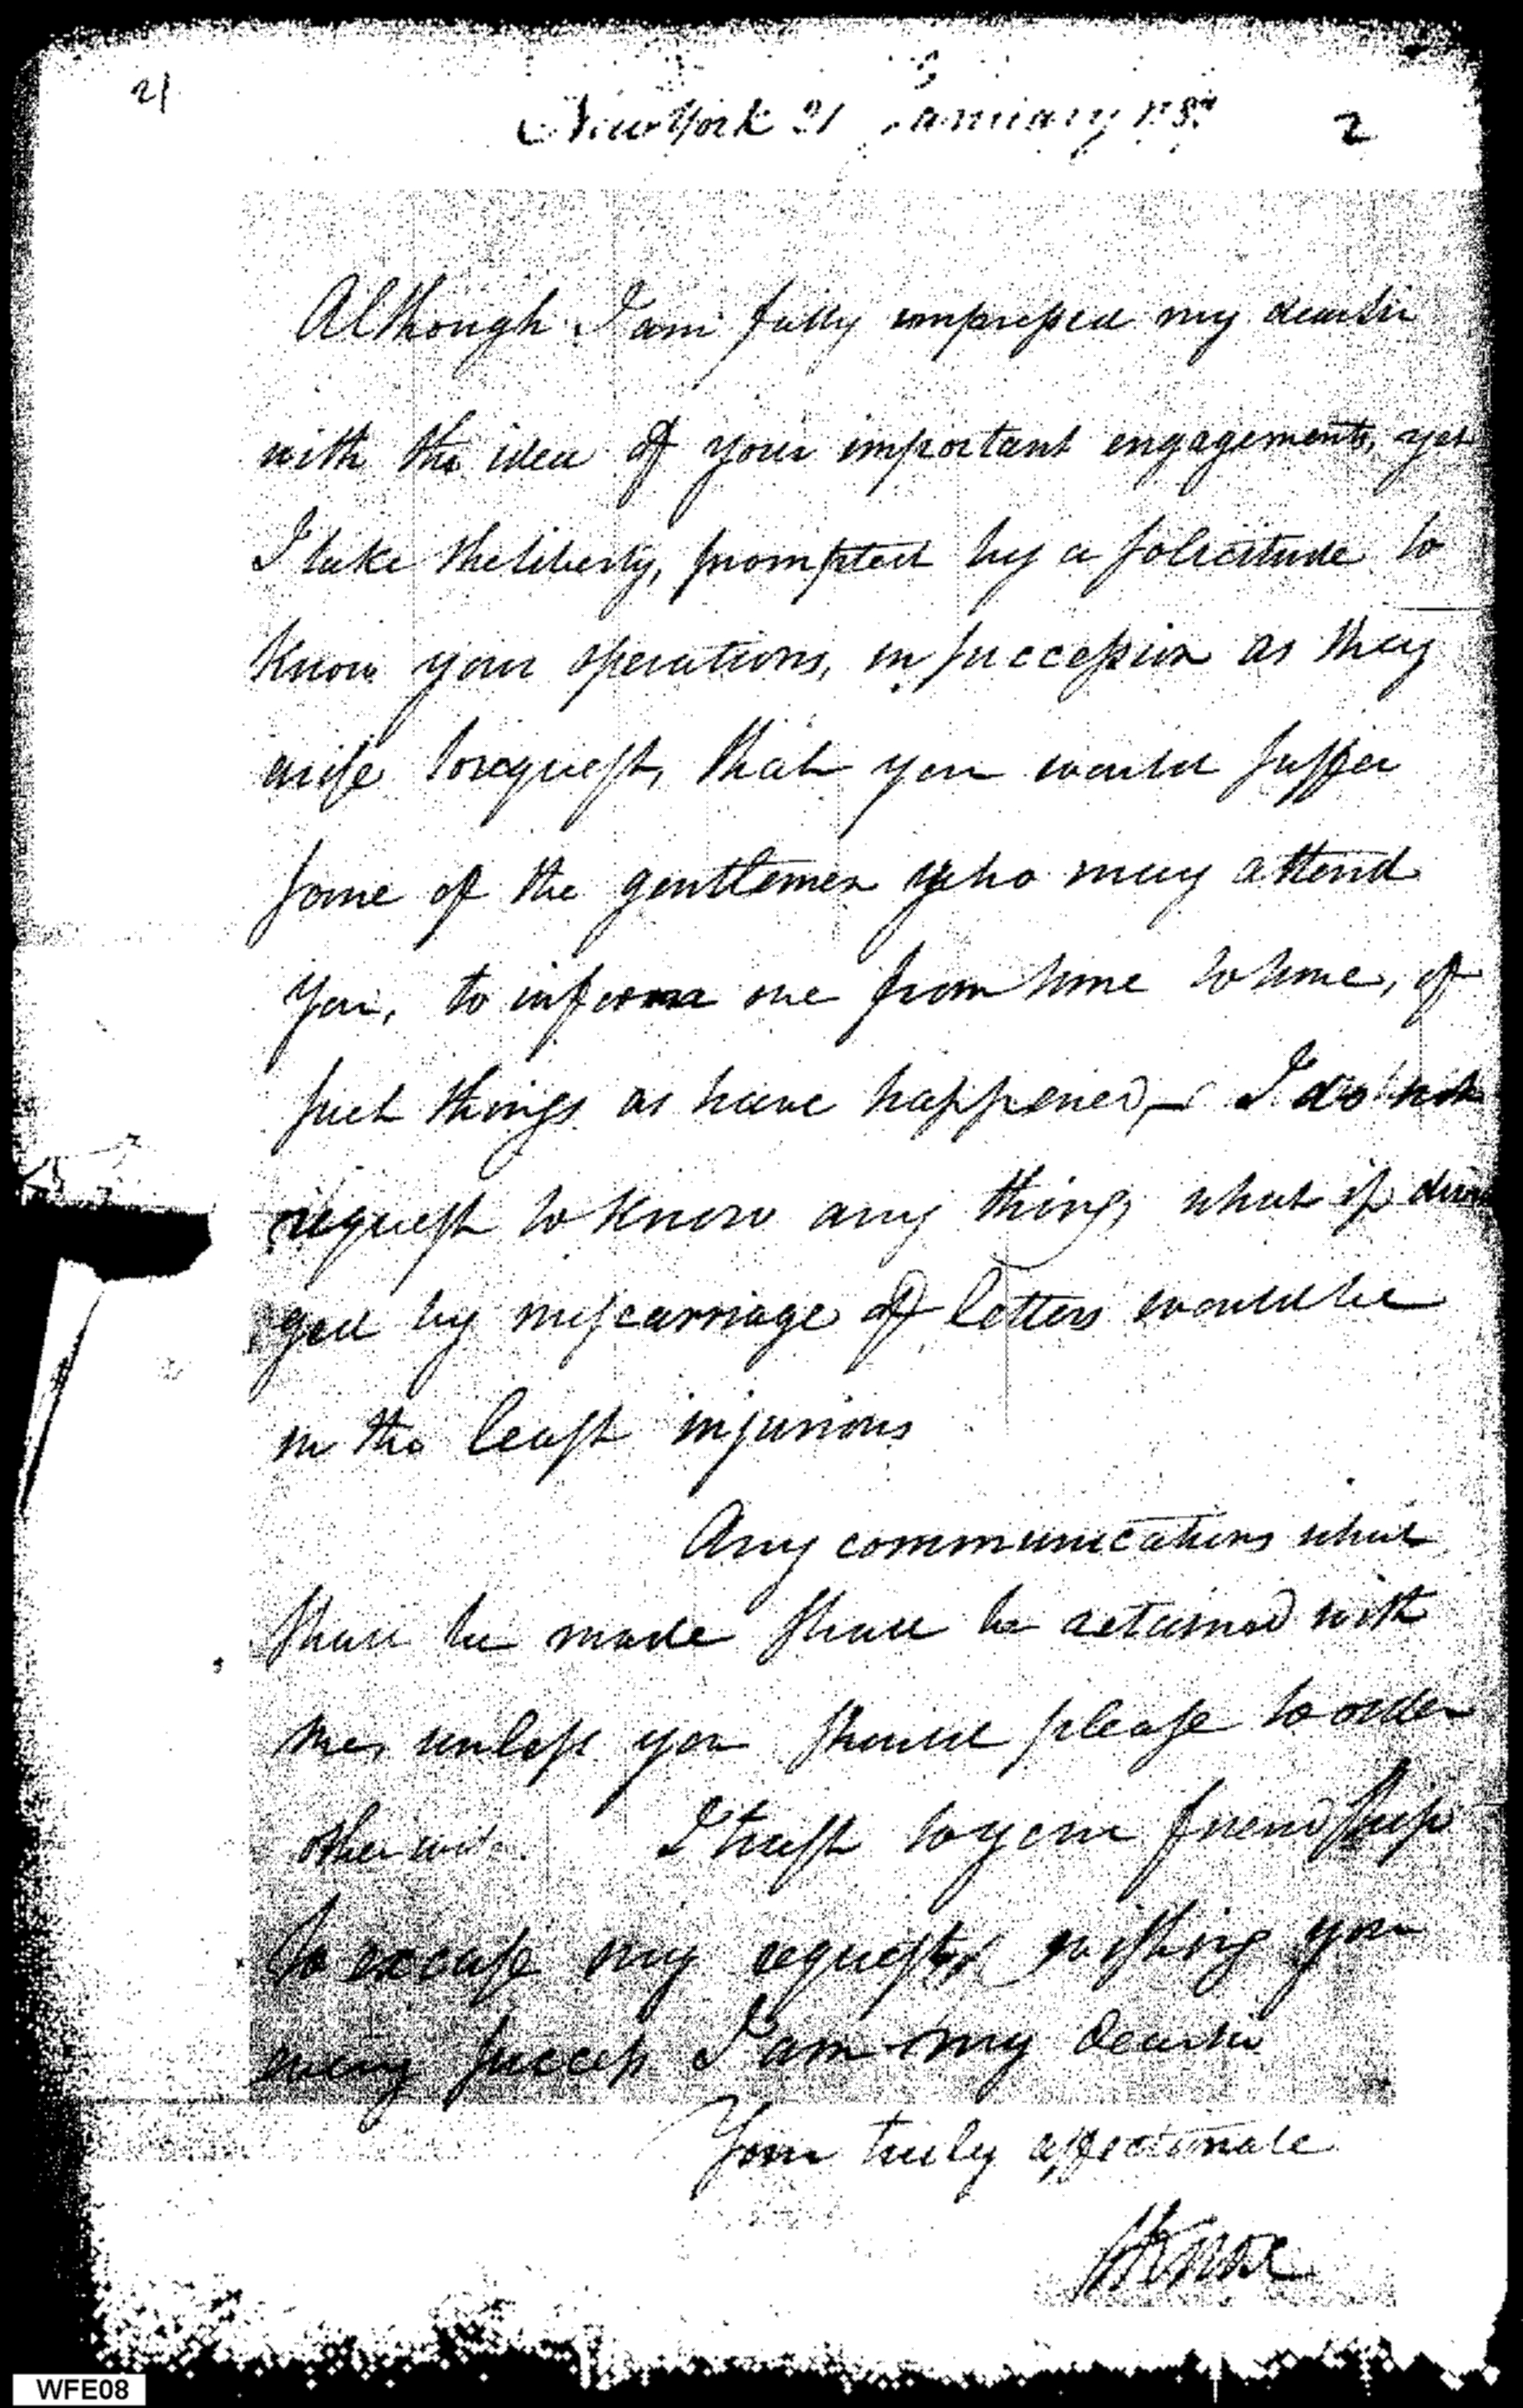 21
New York 21 January 1787
2
Although I am fully impressed my dear sir
with the idea of your important engagements, yet
I take the liberty, prompted by a solicitude to
know your operations, in succession as they
arise to request, that you would suffer
some of the gentlemen who may attend
you, to inform me from time to time, of
such things as have happened,— I do not
request to know any thing, what if divul
ged by miscarriage of letters would be
in the least injurious
Any communications which
shall be made shall be retained with
me, unless you should please to order
otherwise. I trust to your friendship
to excuse my request, wishing you
every success I am my dear sir
Your truly affectionate
HKnox
WFE08